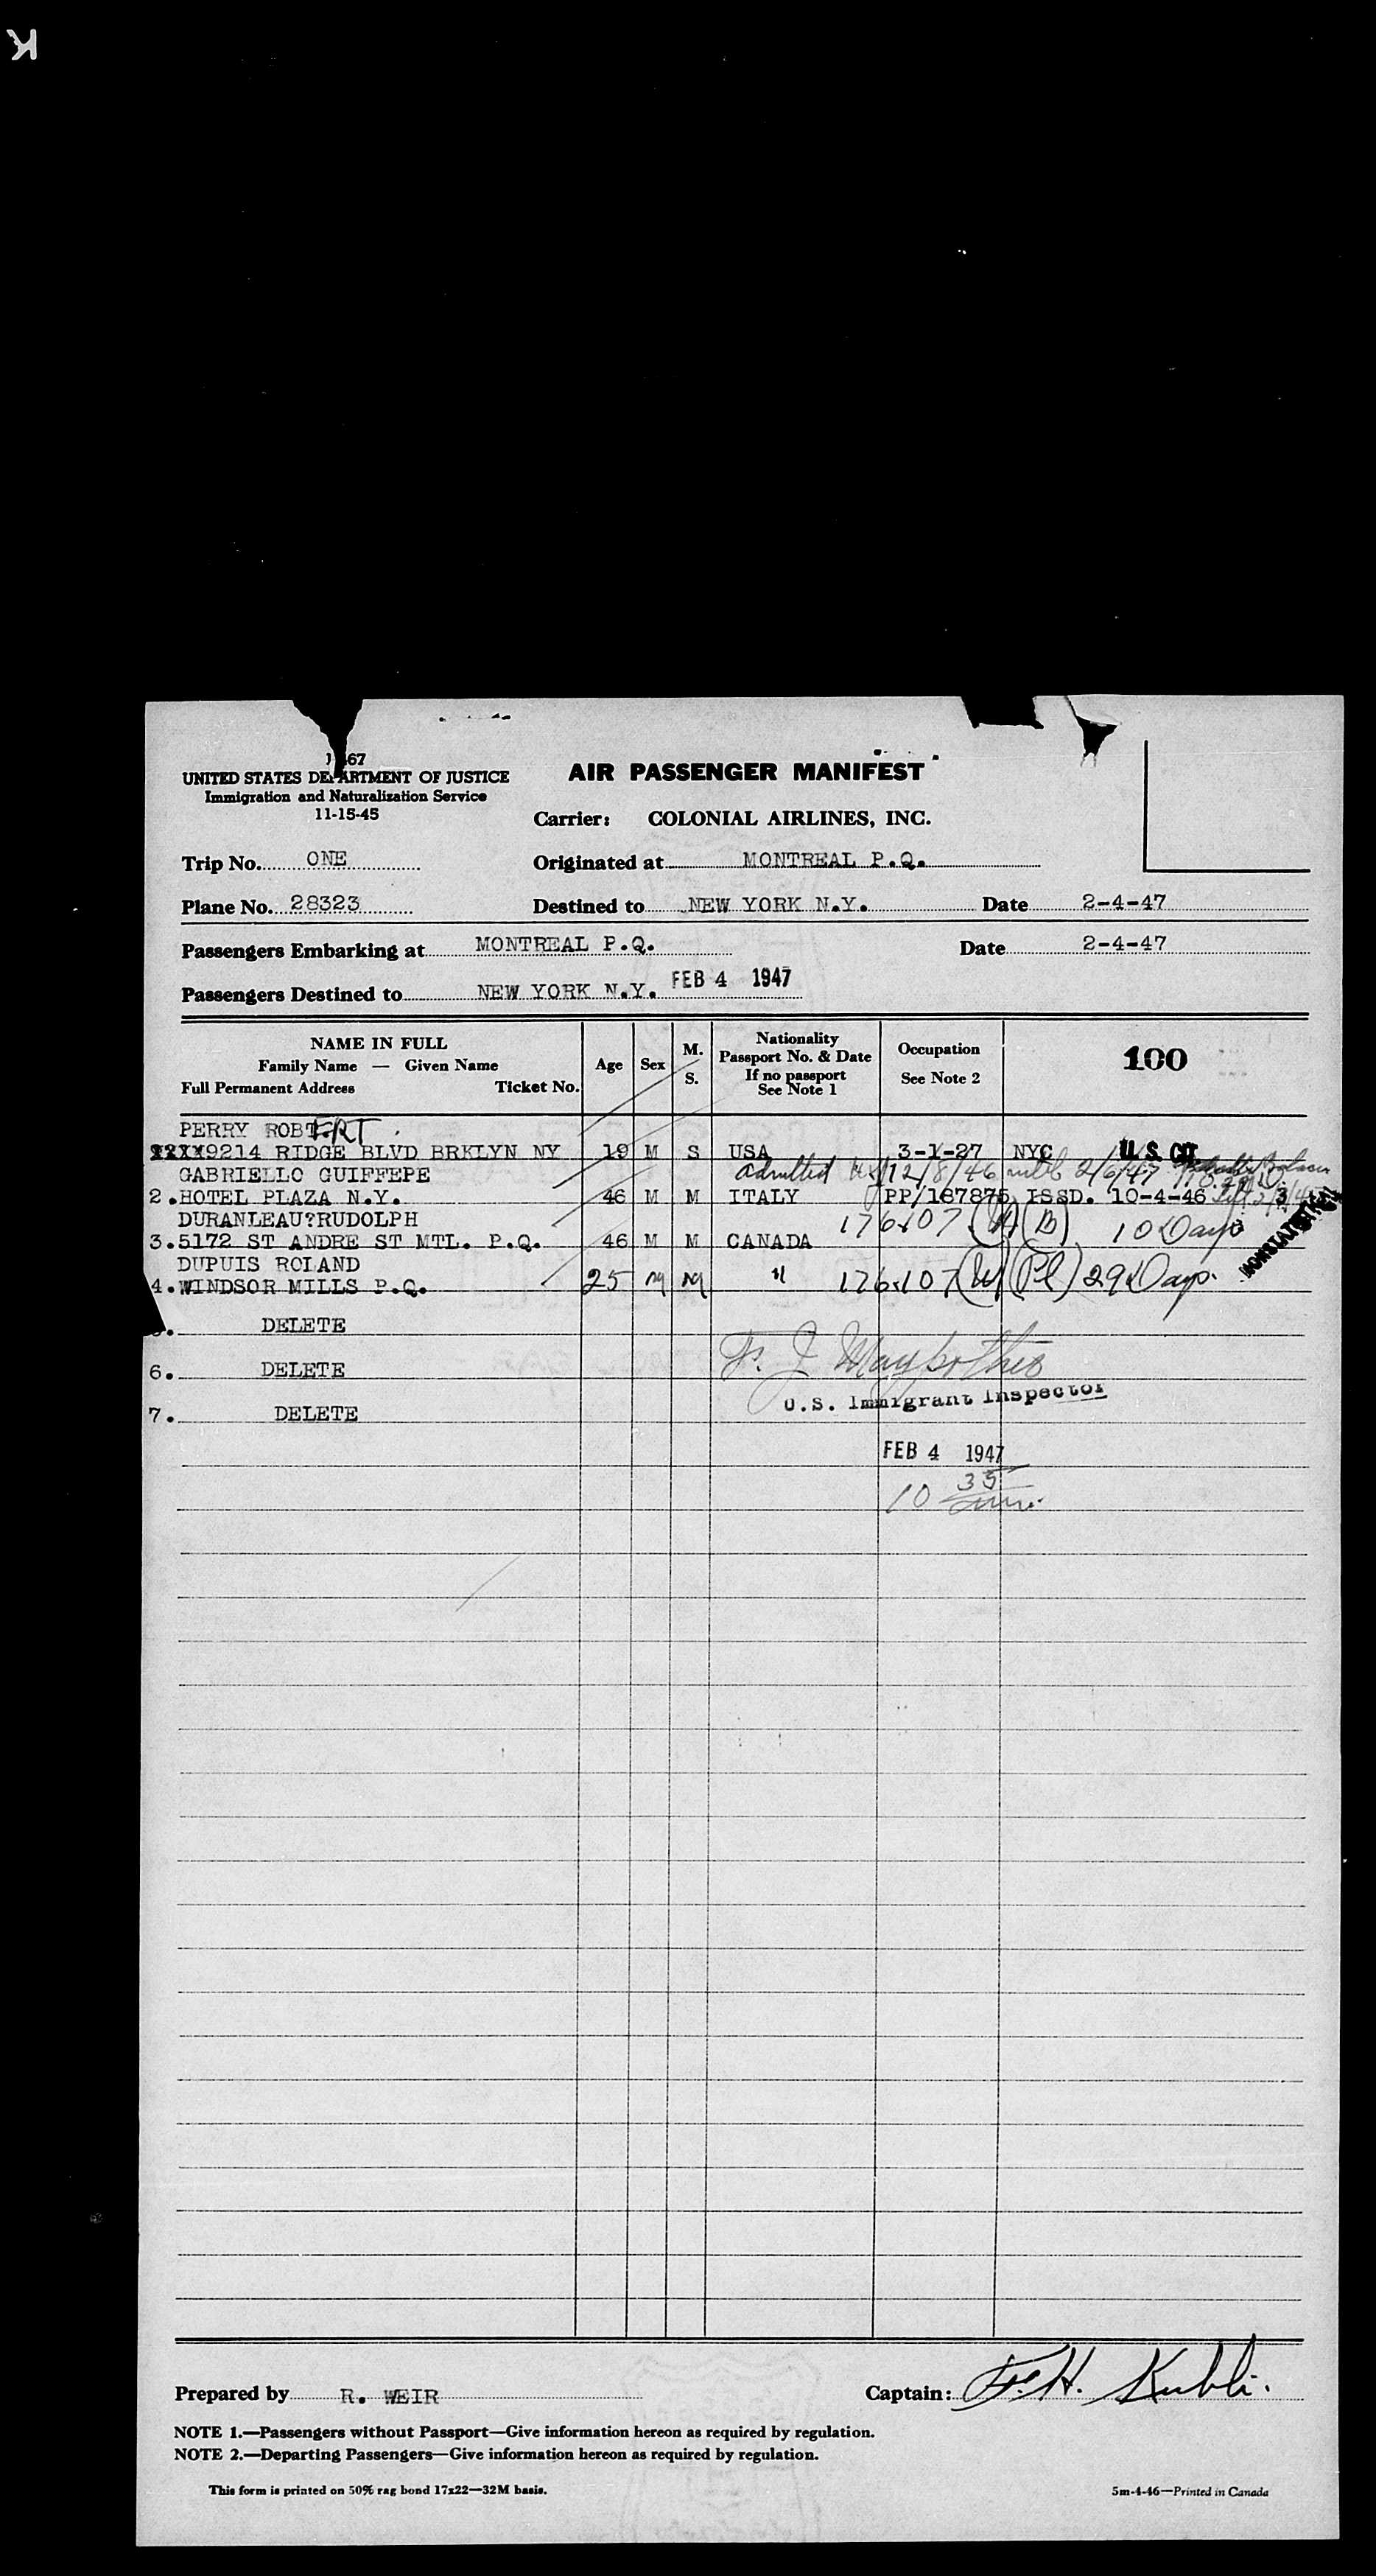 K
1 67
UNITED STATES DEPARTMENT OF JUSTICE
Immigration and Naturalization Service
11-15-45
AIR PASSENGER MANIFEST
Carrier: COLONIAL AIRLINES, INC.
Trip No. ONE Originated at MONTREAL P.Q.
Plane No. 28323 Destined to NEW YORK N.Y. Date 2-4-47
Passengers Embarking at MONTREAL P.Q. Date 2-4-47
Passengers Destined to NEW YORK N.Y. FEB 4 1947
NAME IN FULL
Family Name — Given Name
Full Permanent Address Ticket No.
Age Sex M. S.
Nationality
Passport No. & Date
If no passport
See Note 1
Occupation
See Note 2
100
PERRY ROBERT
9214 RIDGE BLVD BRKLYN NY 19 M S USA 3-1-27 NYC U.S. CIT
GABRIELLO GUIFFEPE admitted 12/8/46 until 2/6/47
2. HOTEL PLAZA N.Y. 46 M M ITALY PP/187875 ISSD. 10-4-46 3
DURANLEAU?RUDOLPH 176.107 (B) 10 Days NONSTATISTICAL
3. 5172 ST ANDRE ST MTL. P.Q. 46 M M CANADA
DUPUIS ROLAND
4. WINDSOR MILLS P.Q. 25 M M " 176.107 (W) (Pl) 29 Days.
DELETE
6. DELETE
7. DELETE
U.S. Immigrant Inspector
FEB 4 1947
10 35
Prepared by R. WEIR Captain: F.H. Kubli.
NOTE 1.—Passengers without Passport—Give information hereon as required by regulation.
NOTE 2.—Departing Passengers—Give information hereon as required by regulation.
This form is printed on 50% rag bond 17x22—32M basis. 5m-4-46—Printed in Canada